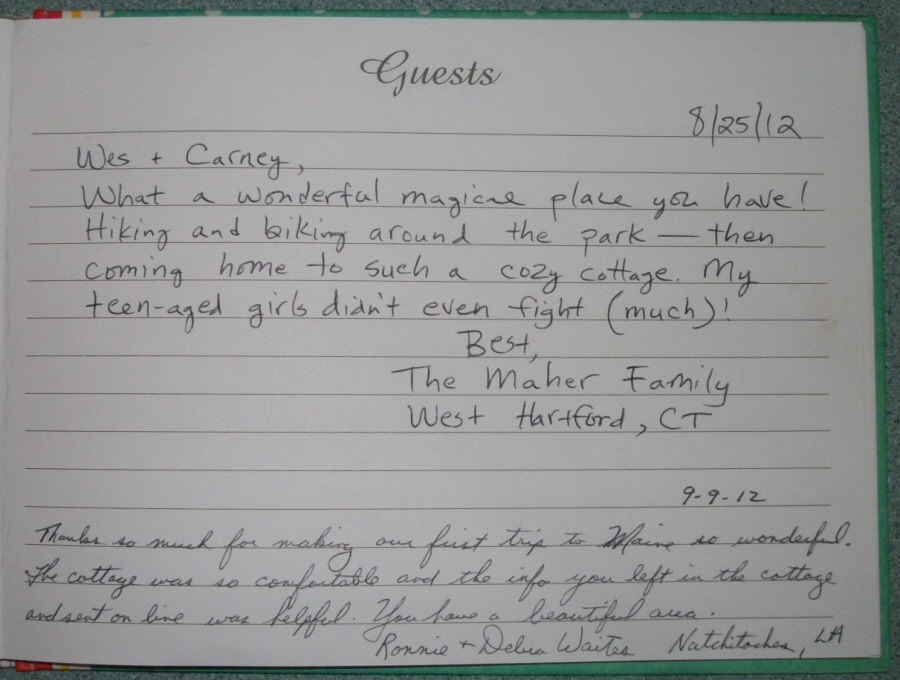 Guests
8/25/12
Wes + Carney,
What a wonderful magical place you have!
Hiking and biking around the park — then
coming home to such a cozy cottage. My
teen-aged girls didn't even fight (much)!
Best,
The Maher Family
West Hartford, CT
9-9-12
Thanks so much for making our first trip to Maine so wonderful.
The cottage was so comfortable and the info you left in the cottage
and sent on line was helpful. You have a beautiful area.
Ronnie + Debra Waites Natchitoches, LA